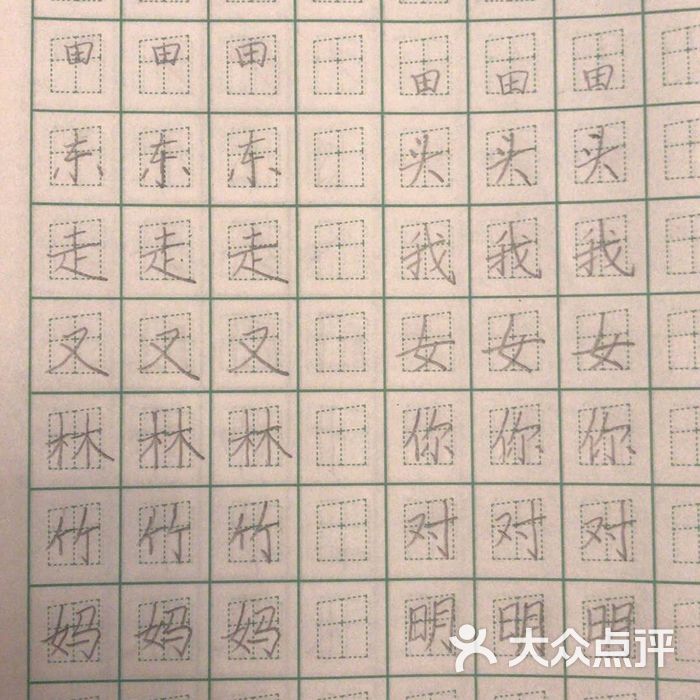 田 田 田 田 田 田
东 东 东 头 头 头
走 走 走 我 我 我
又 又 又 女 女 女
林 林 林 你 你 你
竹 竹 竹 对 对 对
妈 妈 妈 明 明 明
大众点评